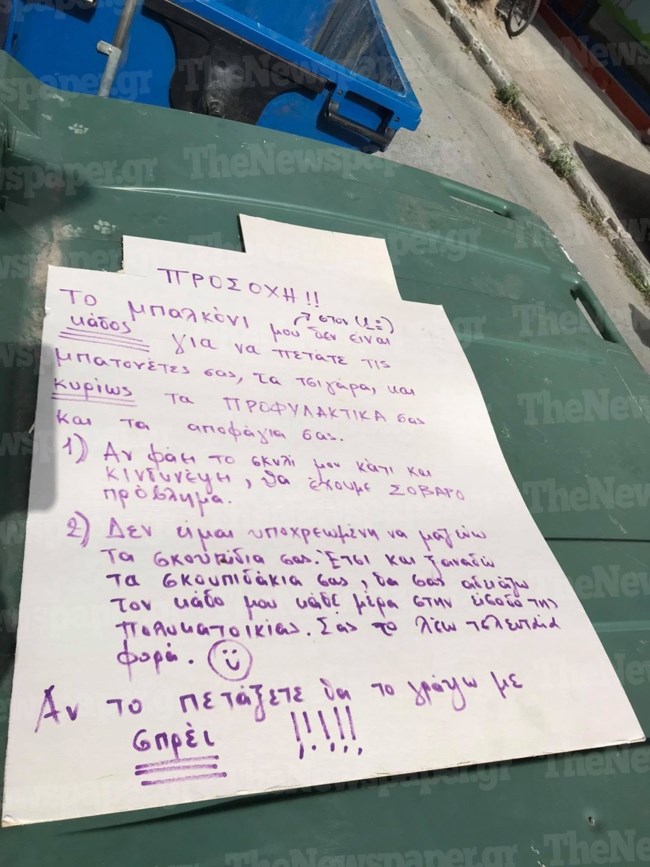 ΠΡΟΣΟΧΗ!!
Το μπαλκόνι μου δεν είναι
κάδος για να πετάτε τις
μπατονέτες σας, τα τσιγάρα, και
κυρίως τα ΠΡΟΦΥΛΑΚΤΙΚΑ σας
και τα αποφάγια σας.
1) Αν φάει το σκυλί μου κάτι και
κινδυνέψη, θα έχουμε ΣΟΒΑΡΟ
πρόβλημα.
2) Δεν είμαι υποχρεωμένη να μαζεύω
τα σκουπίδια σας. Έτσι και ξαναδώ
τα σκουπιδάκια σας, θα σας αδειάζω
τον κάδο μου κάθε μέρα στην είσοδο της
πολυκατοικίας. Σας το λέω τελευταία
φορά.
Αν το πετάξετε θα το γράψω με
σπρέι !!!!!
TheNewspaper.gr